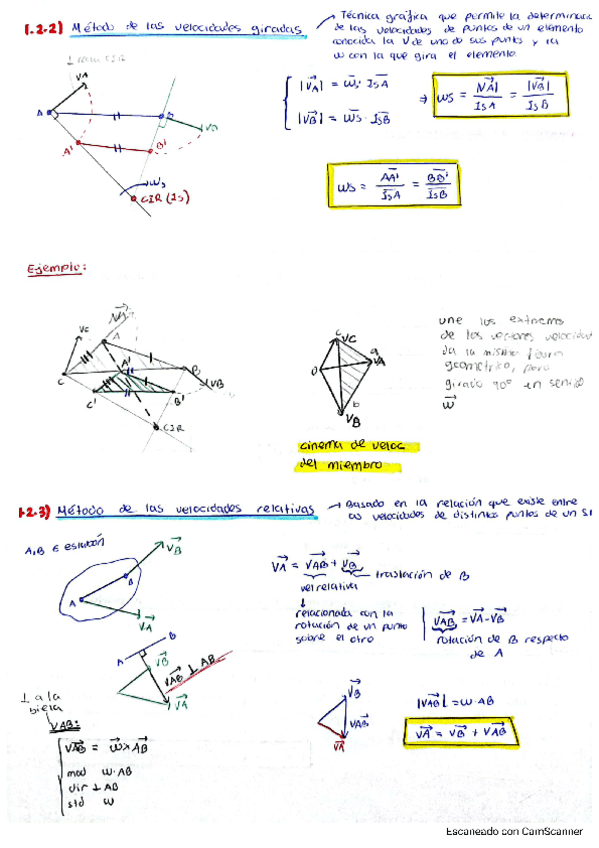 1.2.2) Método de las velocidades giradas
→ Técnica gráfica que permite la determinación
de las velocidades de puntos de un elemento
conocida la V de uno de sus puntos y la
ω con la que gira el elemento.
⊥ con CIR
VA
A
B
VB
A'
B'
ωs
CIR (Is)
|VA| = ωs · IsA
|VB| = ωs · IsB
→ ωs = |VA| / IsA = |VB| / IsB
ωs = AA' / IsA = BB' / IsB
Ejemplo:
VC
VA
A
C
A'
B
VB
C'
B'
CIR
c
VC
a
VA
O
b
VB
cinema de veloc
del miembro
une los extremos
de los vectores velocidad
da la misma figura
geométrica, pero
girada 90° en sentido
ω
1.2.3) Método de las velocidades relativas
→ Basado en la relación que existe entre
las velocidades de distintos puntos de un S
A,B ∈ eslabón
VB
B
A
VA
VA = VAB + VB
→ traslación de B
vel relativa
relacionada con la
rotación de un punto
sobre el otro
VAB = VA - VB
rotación de B respecto
de A
A
B
VB
VAB ⊥ AB
VA
⊥ a la
biela
VAB:
VAB = ω × AB
mod ω · AB
dir ⊥ AB
std ω
VB
VAB
VA
|VAB| = ω · AB
VA = VB + VAB
Escaneado con CamScanner